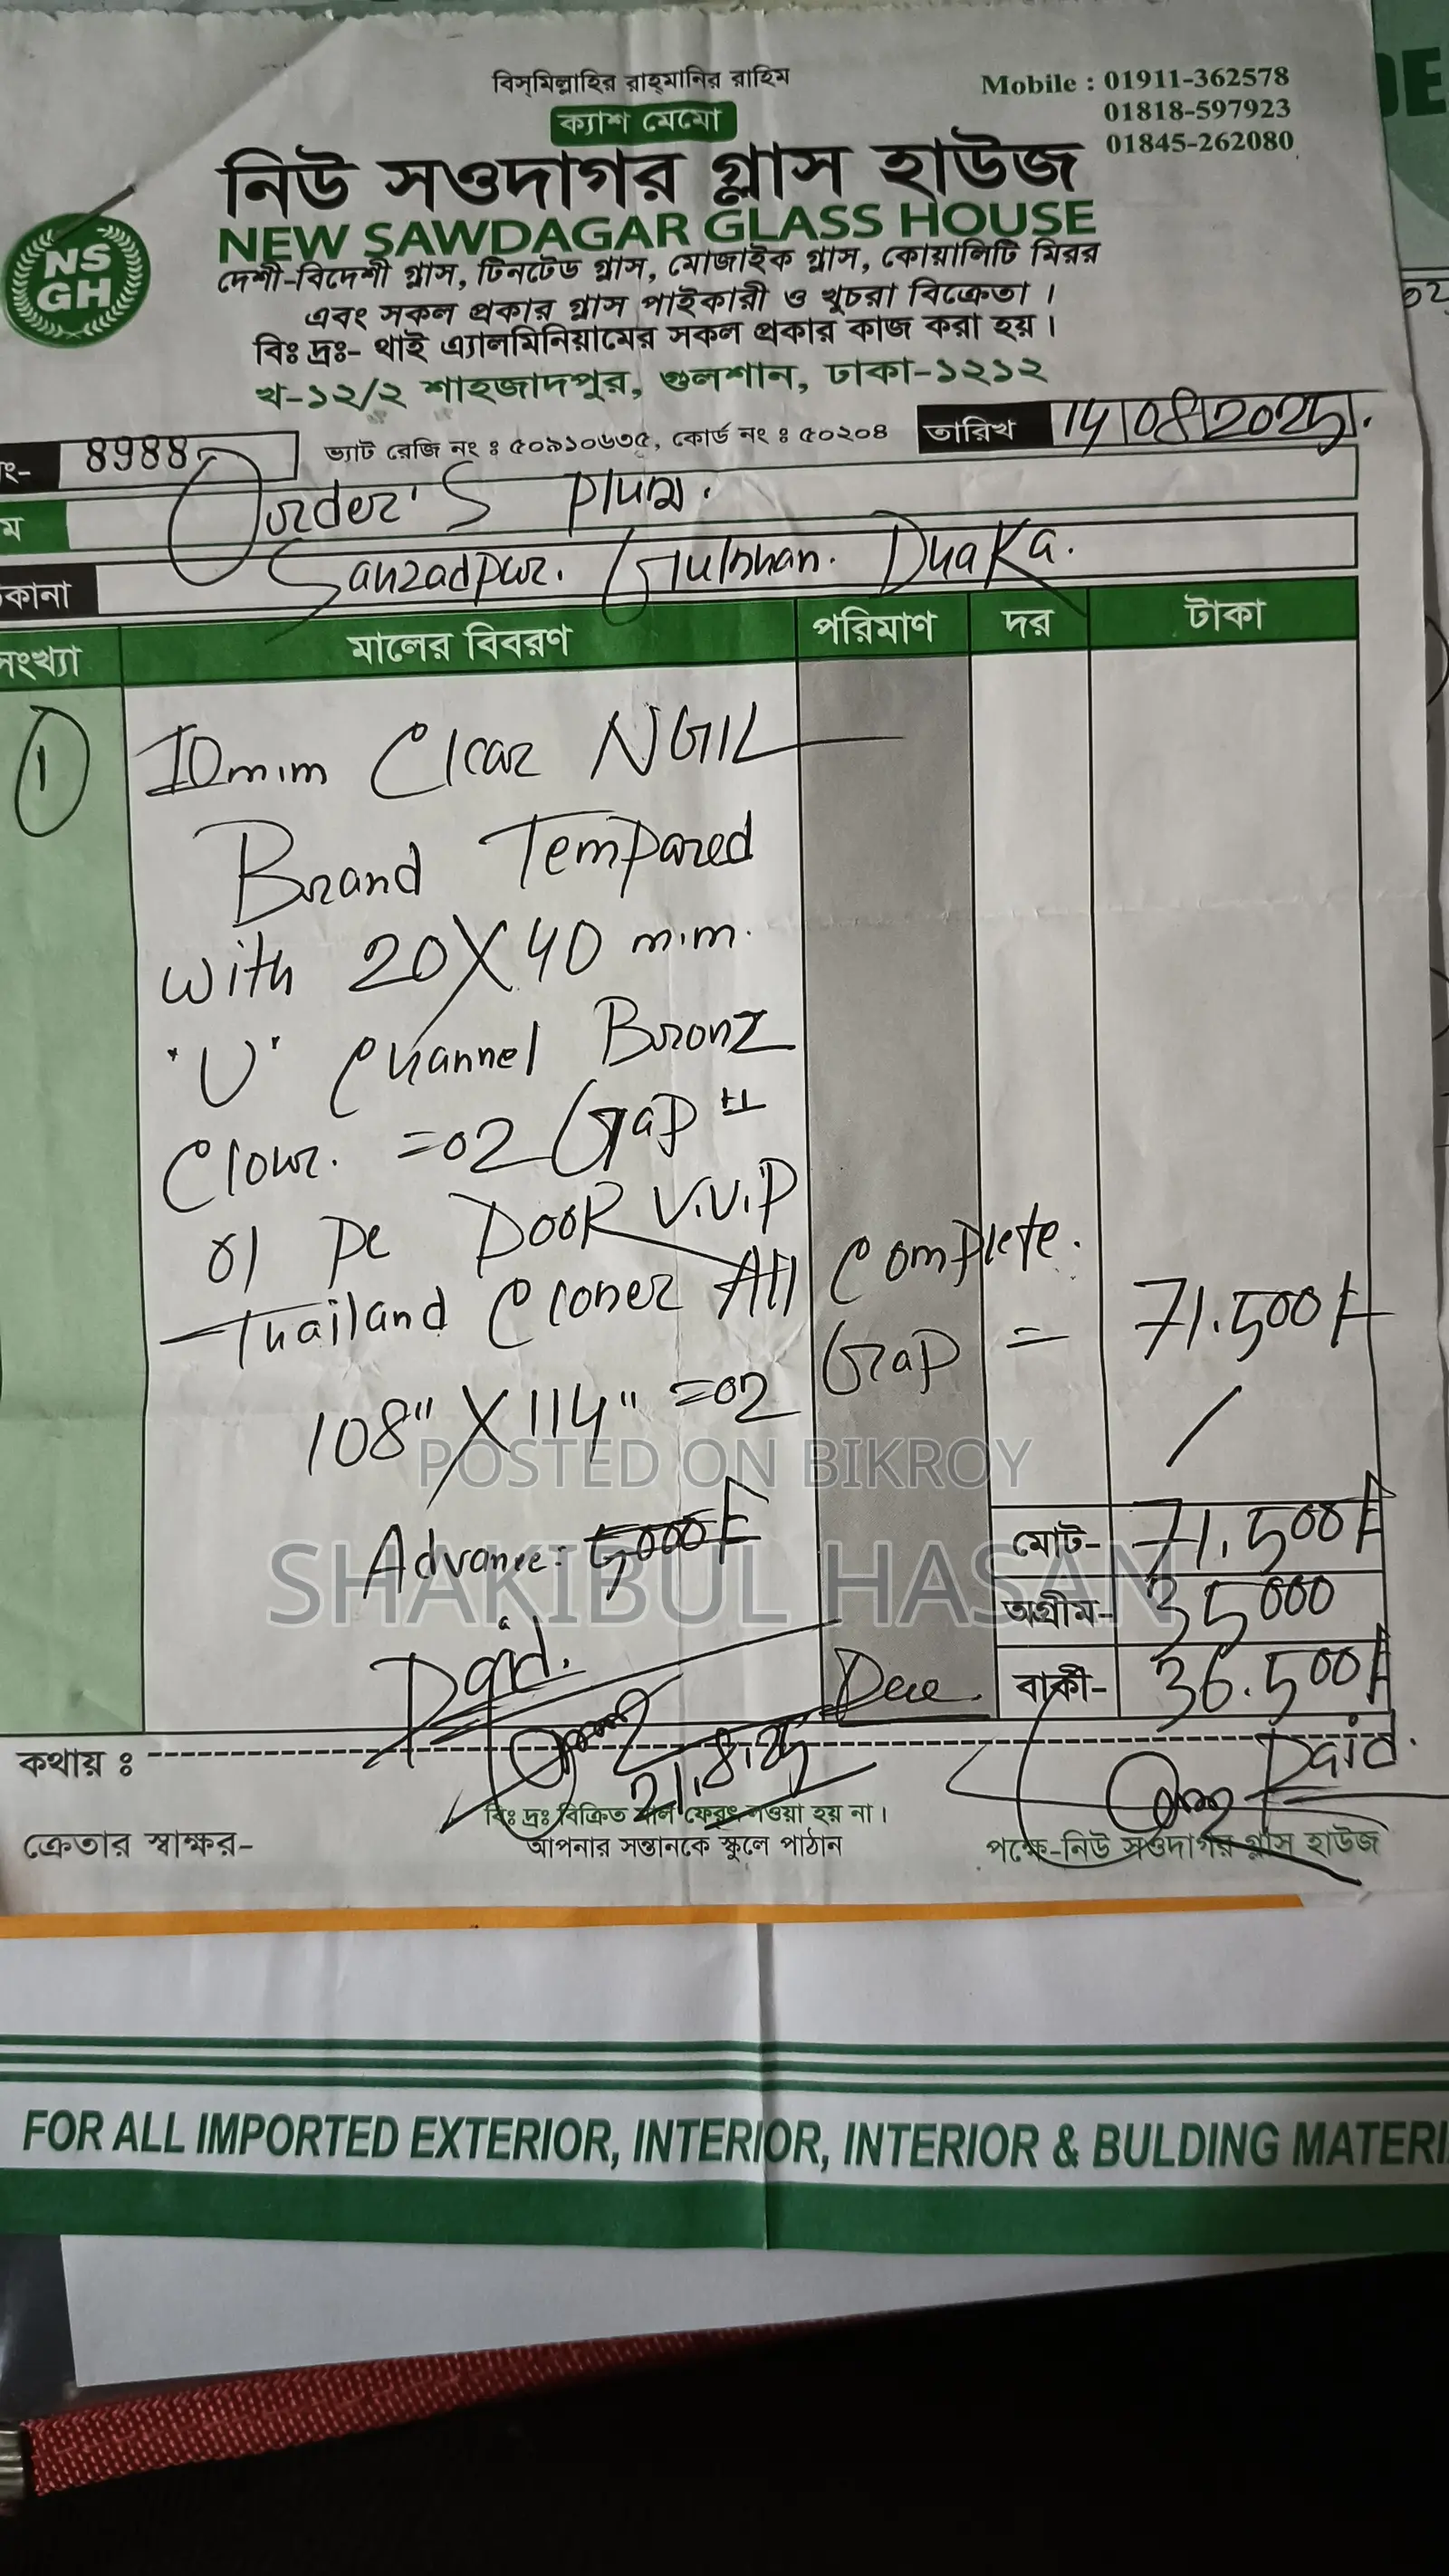 বিস্‌মিল্লাহির রাহ্‌মানির রাহিম
ক্যাশ মেমো
Mobile : 01911-362578
01818-597923
01845-262080
নিউ সওদাগর গ্লাস হাউজ
NEW SAWDAGAR GLASS HOUSE
NS
GH
দেশী-বিদেশী গ্লাস, টিনটেড গ্লাস, মোজাইক গ্লাস, কোয়ালিটি মিরর
এবং সকল প্রকার গ্লাস পাইকারী ও খুচরা বিক্রেতা ।
বিঃ দ্রঃ- থাই এ্যালমিনিয়ামের সকল প্রকার কাজ করা হয় ।
খ-১২/২ শাহজাদপুর, গুলশান, ঢাকা-১২১২
নং- 8988 ভ্যাট রেজি নং ঃ ৫০৯১০৬৩৫, কোর্ড নং ঃ ৫০২০৪ তারিখ 14/08/2025.
ম Order'S Plum.
কানা Sahzadpur. Gulshan. Dhaka.
সংখ্যা মালের বিবরণ পরিমাণ দর টাকা
1 10mim Clear NGIL
Brand Tempared
with 20X40 m.m.
"U" Channel Bronz
Clour. =02 Gap
01 Pc Door V.V.P
Thailand Closer All Complete.
108" X 114" =02 Grap = 71.500/-
POSTED ON BIKROY
Advance: 5000/-
মোট- 71.500/-
SHAKIBUL HASAN
অগ্রীম- 35000
Paid. Due. বাকী- 36.500/-
21.8.25 Paid.
কথায় ঃ
বিঃ দ্রঃ বিক্রিত মাল ফেরৎ নেওয়া হয় না ।
ক্রেতার স্বাক্ষর- আপনার সন্তানকে স্কুলে পাঠান পক্ষে-নিউ সওদাগর গ্লাস হাউজ
FOR ALL IMPORTED EXTERIOR, INTERIOR, INTERIOR & BULDING MATERI